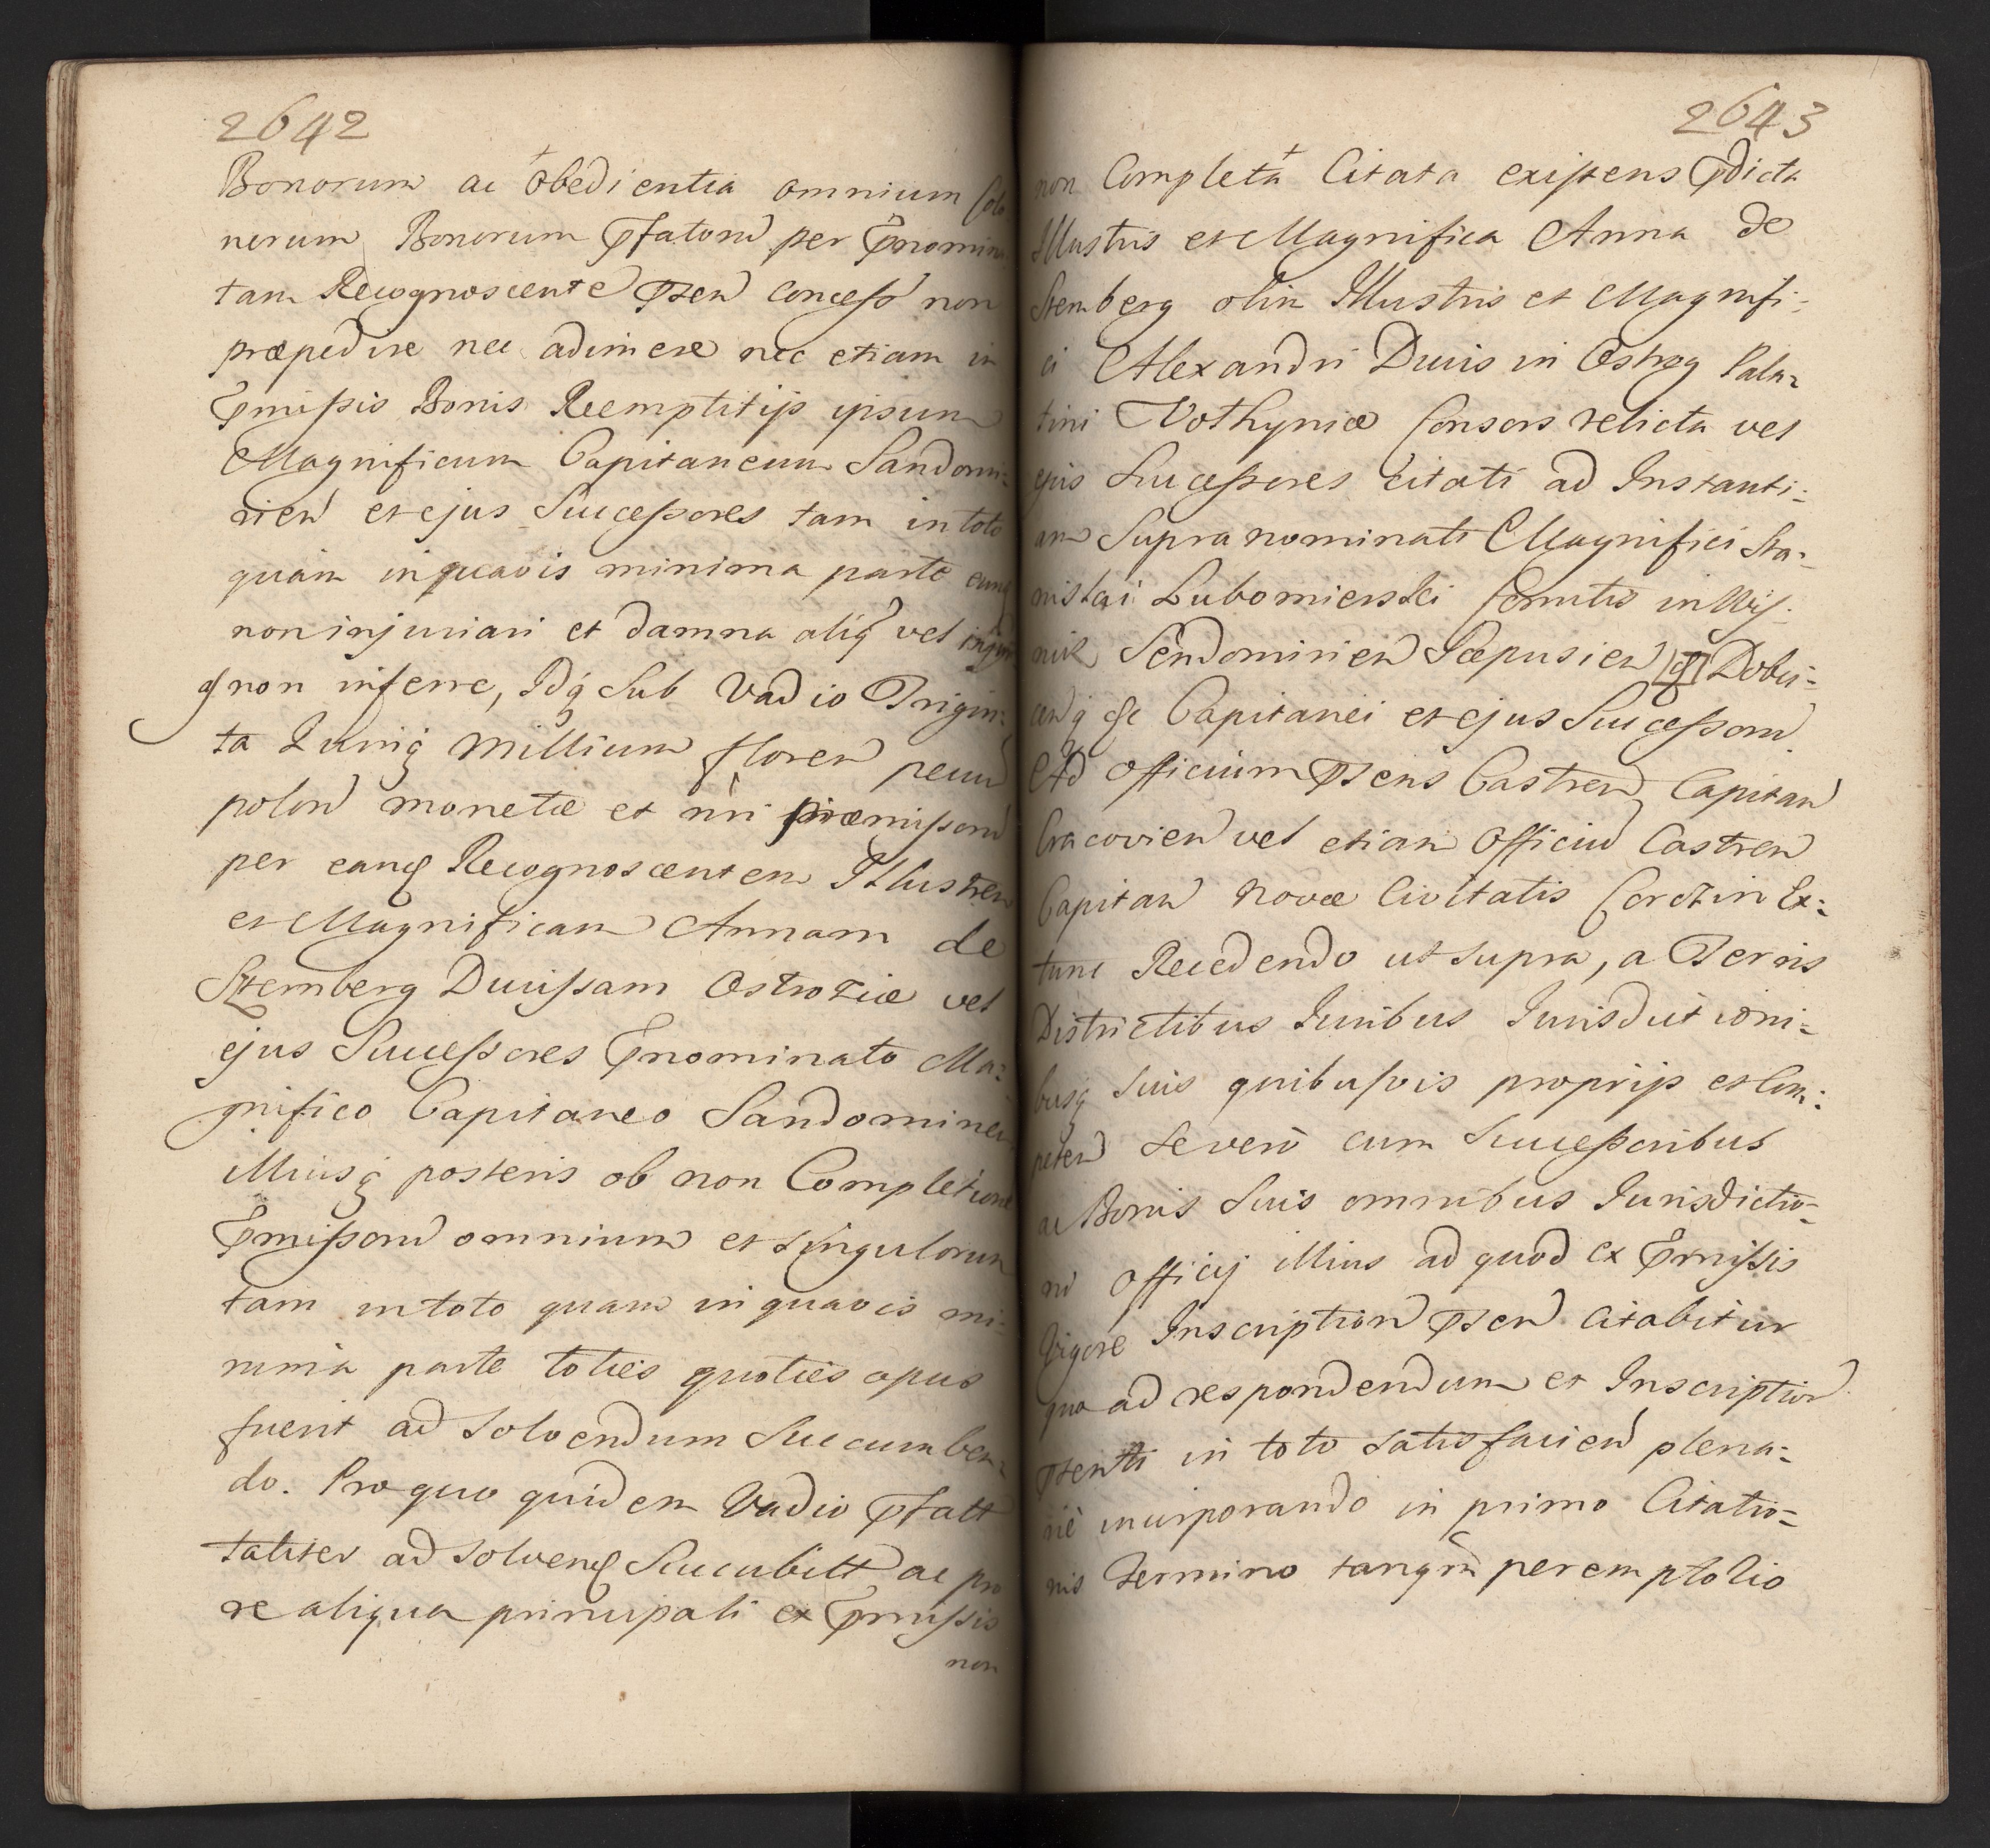 2642
Bonorum ac obedientia omnium Colo
norum Bonorum Pfatorũ per Pnomina
tam Recognoscente Psen Concesso non
præpedire nec adimere nec etiam in
Pmissis Bonis Reemptitijs ipsum
Magnificum Capitaneum Sandomi:
rien et ejus Successores tam in toto
quàm in quavis minima parte eumq
non injuriari et damna aliq vel injur
q non inferre, Idq Sub Vadio Trigin:
ta Quinq Millium floren pecun
polon monetæ et nri præmissorũ
per eanq Recognoscentem Illustren
et Magnificam Annam de
Sztemberg Ducissam Ostrogiæ vel
ejus Successores Pnominato Ma:
gnifico Capitaneo Sandomirien
illiusq posteris ob non Completione
Pmissorũ omnium et Singulorum
tam in toto quam in quavis mi:
nima parte toties quoties opus
fuerit ad Solvendum Succumben:
do. Pro quo quidem Vadio Pfatt
taliter ad Solvenq Succubitt ac pro
re aliqua principali ex Pmissis
non
2643
non Completa Citata existens Pdicta
Illustris et Magnifica Anna de
Stemberg olim Illustris et Magnifi:
ci Alexandri Ducis in Ostrog Pala:
tini Volhyniæ Consors relicta vel
ejus Successores Citati ad Instanti:
am Supra nominati Magnifici Sta:
nislai Lubomierski Comitis in Wis:
nic Sendomirien Scepusien q Dobci:
cenq &c Capitanei et ejus Successorũ
Ad Officium Psens Castren Capitan
Cracovien vel etiam Officiũ Castren
Capitan Novæ Civitatis Corczin Ex:
tunc Recedendo ut supra, a Terris
Districtibus Iuribus Iurisdictioni:
busq Suis quibusvis proprijs et Com:
peten Se verò cum Successoribus
ac Bonis Suis omnibus Iurisdictio:
ni Officij illius ad quod ex Pmissis
Vigore Inscription Psen Citabitur
qua ad respondendum et Inscription
Psenti in toto Satisfacien plena:
riè incorporando in primo Citatio:
nis Termino tanqm peremptorio